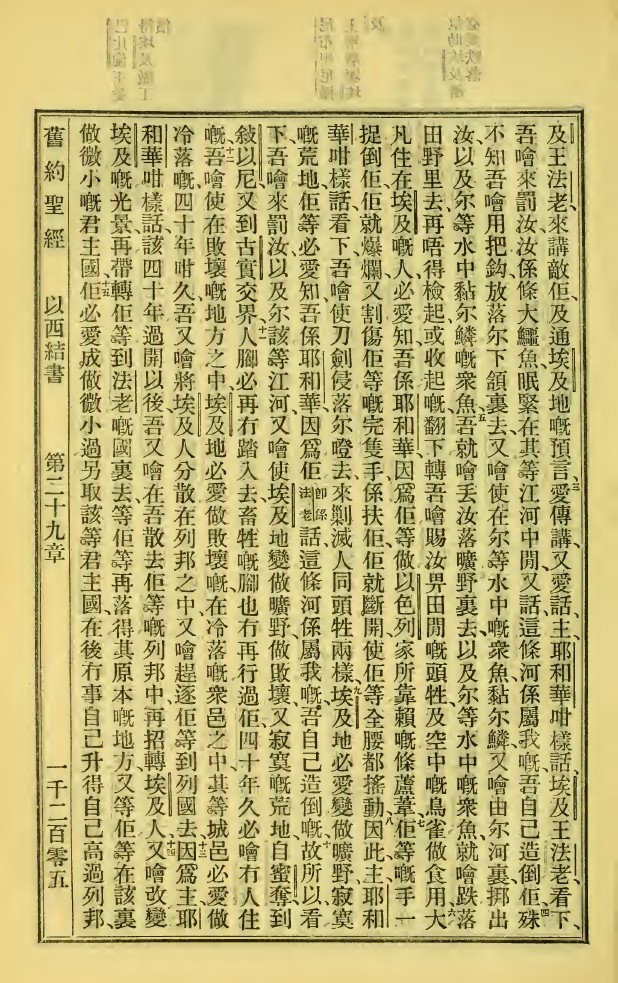 及王法老、來講敵佢及通埃及地嘅預言、三愛傳講、又愛話、主耶和華咁樣話、埃及王法老、看下、
吾噲來罰汝、汝係條大鱷魚、眠緊在其等江河中間、又話、這條河係屬我嘅、吾自己造倒佢、四殊
不知吾噲用把鈎放落尔下頷裏去、又噲使在尔等水中嘅衆魚黏尔鱗、又噲由尔河裏揶出
汝、以及尔等水中黏尔鱗嘅衆魚、五吾就噲丢汝落曠野裏去、以及尔等水中嘅衆魚、就噲跌落
田野里去、再唔得檢起或收起嘅、翻下轉吾噲賜汝畀田間嘅頭牲、及空中嘅鳥雀做食用、六大
凡住在埃及嘅人、必愛知吾係耶和華、因爲佢等做以色列家所靠賴嘅條蘆葦、七佢等嘅手一
捉倒佢、佢就爆爛、又割傷佢等嘅完隻手、係扶佢、佢就斷開、使佢等全腰都搖動、八因此主耶和
華咁樣話、看下、吾噲使刀劍侵落尔嶝去、來剿滅人同頭牲兩樣、九埃及地必愛變做曠野、寂寞
嘅荒地、佢等必愛知吾係耶和華、因爲佢卽係法老話、這條河係屬我嘅、吾自己造倒嘅、十故所以看
下、吾噲來罰汝、以及尔該等江河、又噲使埃及地變做曠野、做敗壞、又寂寞嘅荒地、自蜜奪到
敍以尼、又到古實交界、十一人腳必再冇踏入去、畜牲嘅腳也冇再行過佢、四十年久必噲冇人住
嘅、十二吾噲使在敗壞嘅地方之中、埃及地必愛做敗壞嘅、在冷落嘅衆邑之中、其等城邑必愛做
冷落嘅、四十年咁久、吾又噲將埃及人分散在列邦之中、又噲趕逐佢等到列國去、十三因爲主耶
和華咁樣話、該四十年過開以後、吾又噲在吾散去佢等嘅列邦中、再招轉埃及人、十四又噲改變
埃及嘅光景、再帶轉佢等到法老嘅國裏去、等佢等再落得其原本嘅地方、又等佢等在該裏
做微小嘅君主國、十五佢必愛成做微小過另取該等君主國、在後冇事自己升得自己高過列邦、
舊約聖經 以西結書 第二十九章 一千二百零五